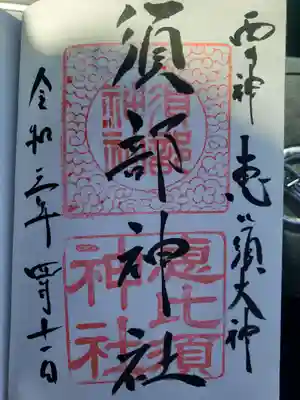 恵比須大神
須部神社
須部神社
恵比須神社
令和三年四月十一日